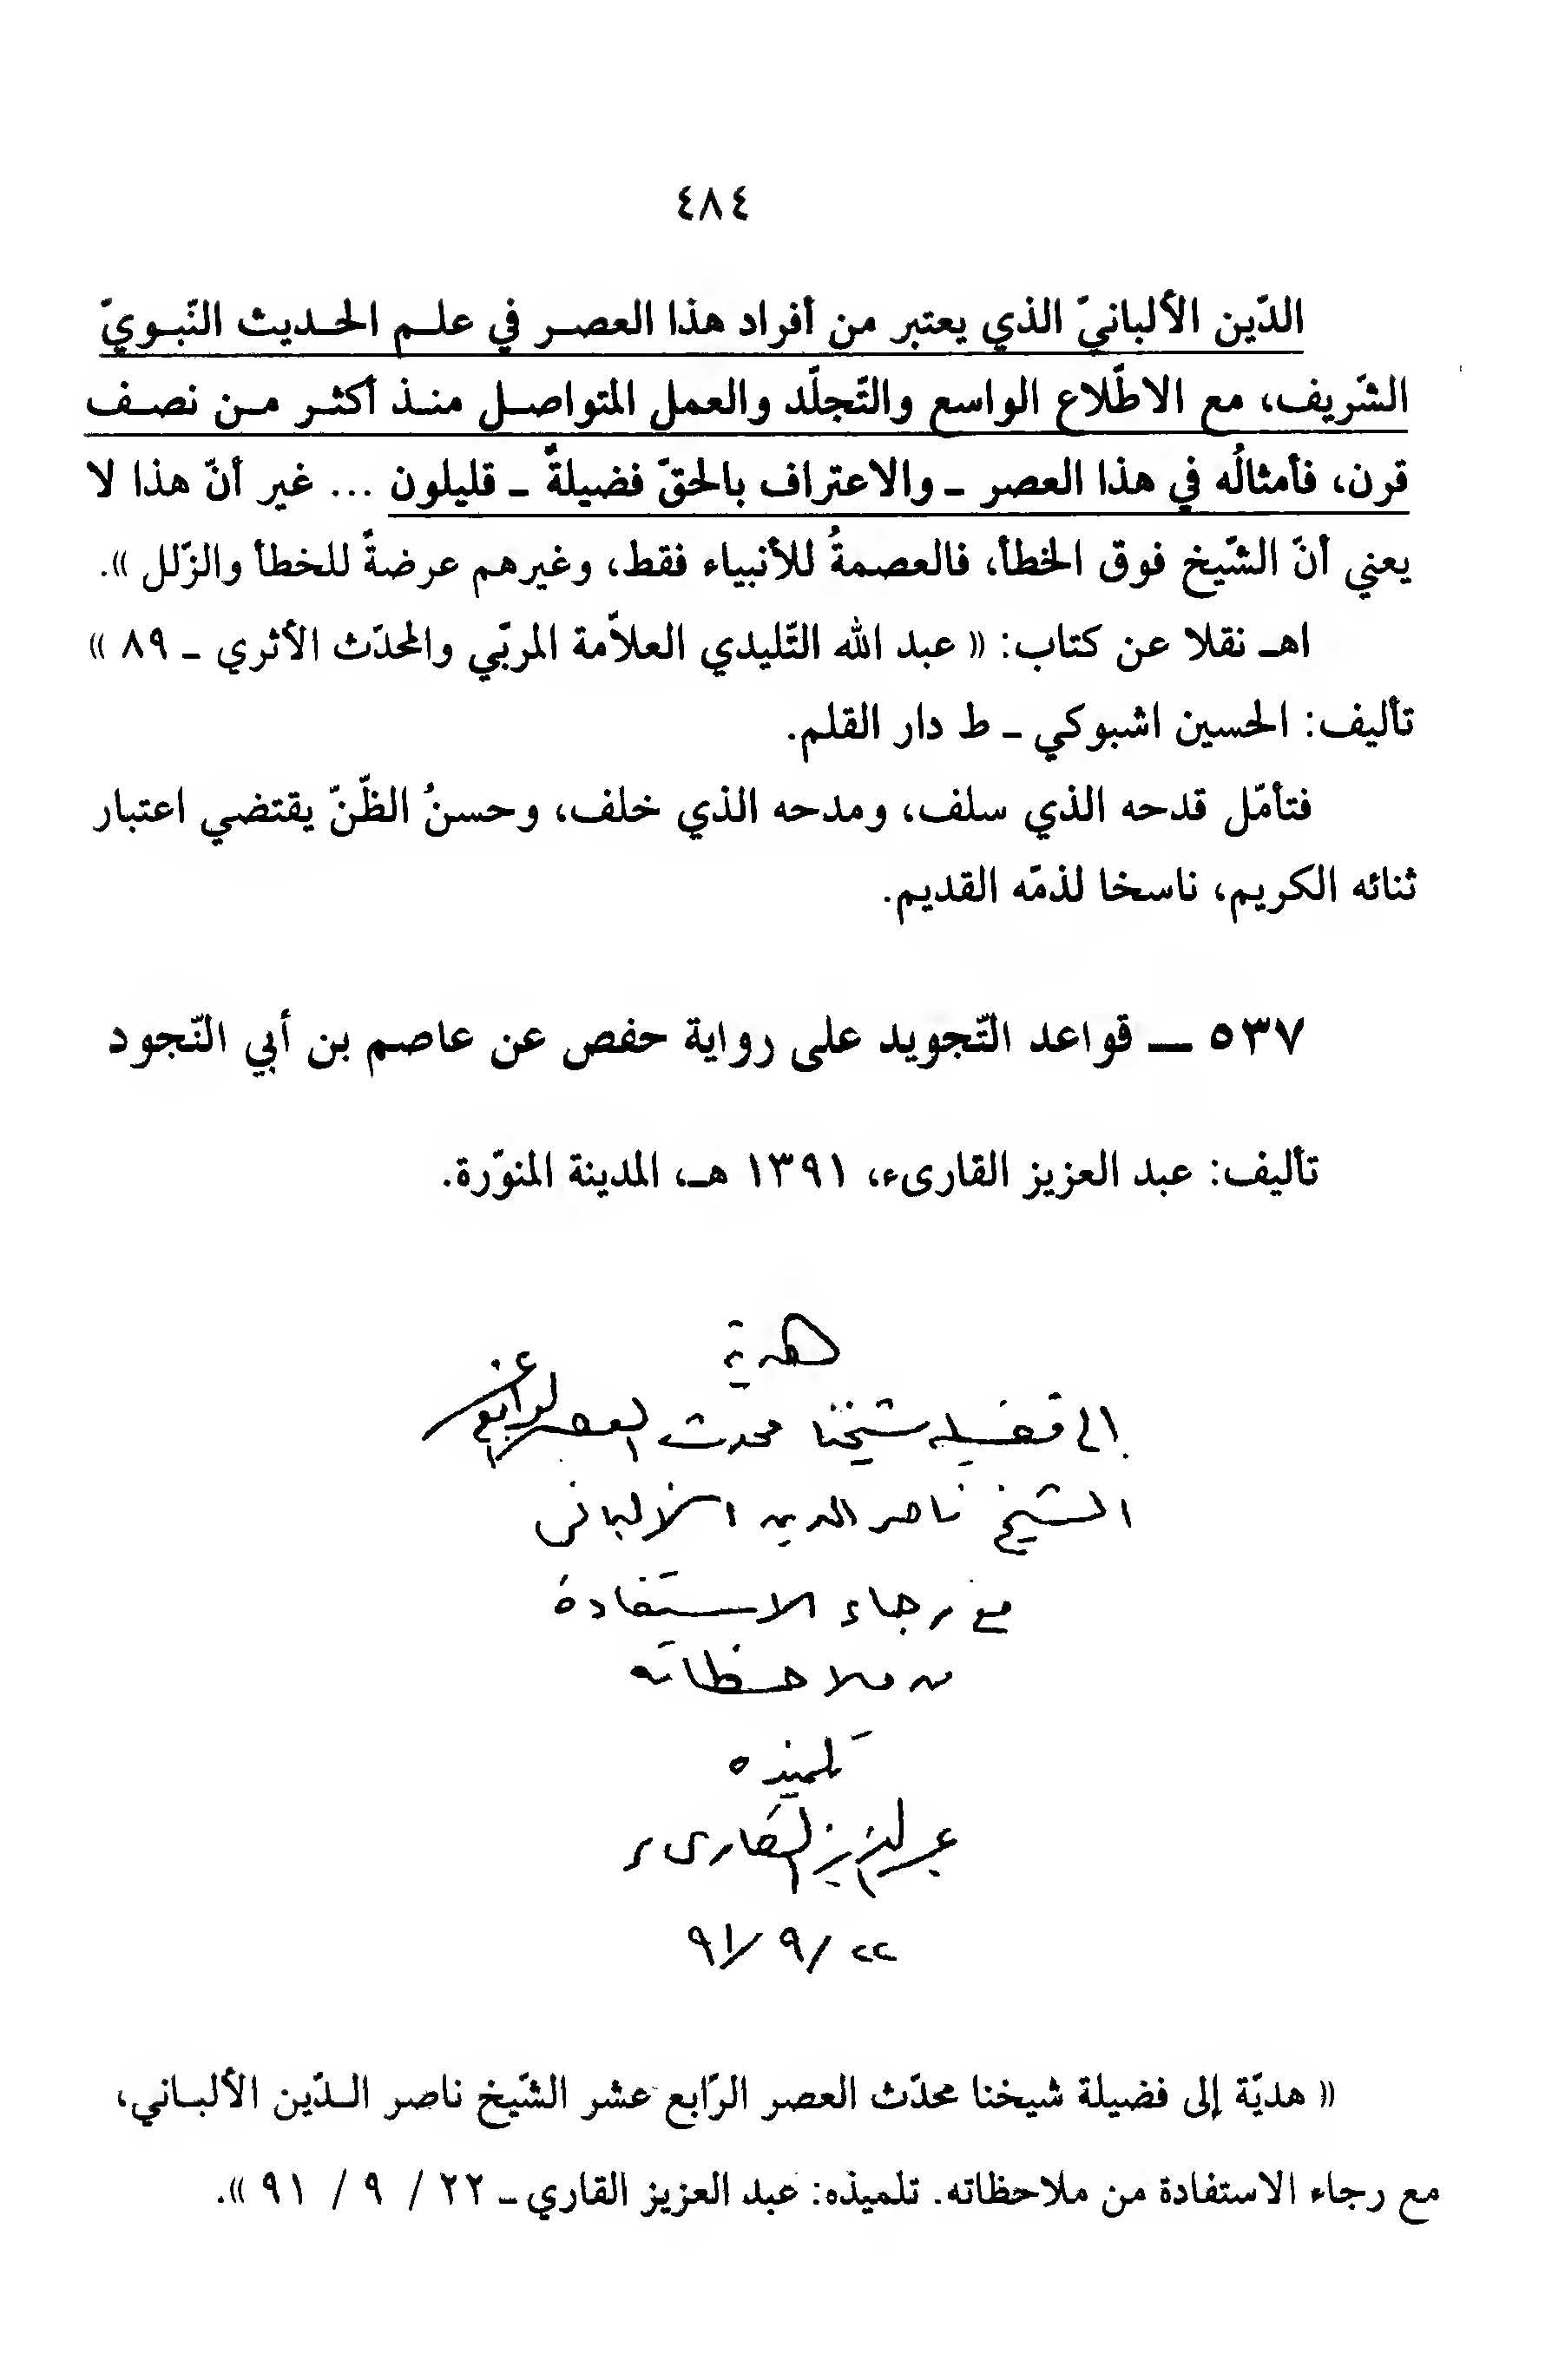 ٤٨٤
الدّين الألبانيّ الذي يعتبر من أفراد هذا العصـر في علـم الحـديث النّبـويّ
الشّريف، مع الاطّلاع الواسع والتّجلّد والعمل المتواصـل منـذ أكثـر مـن نصـف
قرن، فأمثالُه في هذا العصر ـ والاعتراف بالحقّ فضيلةٌ ـ قليلون ... غير أنّ هذا لا
يعني أنّ الشّيخ فوق الخطأ، فالعصمةُ للأنبياء فقط، وغيرهم عرضةً للخطأ والزّلل ».
اهـ نقلا عن كتاب: « عبد الله التّليدي العلاّمة المربّي والمحدّث الأثري ـ ٨٩ »
تأليف: الحسين اشبوكي ـ ط دار القلم.
فتأمّل قدحه الذي سلف، ومدحه الذي خلف، وحسنُ الظّنّ يقتضي اعتبار
ثنائه الكريم، ناسخا لذمّه القديم.
٥٣٧ ـ قواعد التّجويد على رواية حفص عن عاصم بن أبي النّجود
تأليف: عبد العزيز القارىء، ١٣٩١ هـ، المدينة المنوّرة.
هدية
إلى فضيلة شيخنا محدث العصر الرابع عشر
الشيخ ناصر الدين الألباني
مع رجاء الاستفادة
من ملاحظاته
تلميذه
عبد العزيز القارىء
٢٢ / ٩ / ٩١
« هديّة إلى فضيلة شيخنا محدّث العصر الرّابع عشر الشّيخ ناصر الـدّين الألبـاني،
مع رجاء الاستفادة من ملاحظاته. تلميذه: عبد العزيز القاري ـ ٢٢ / ٩ / ٩١ ».